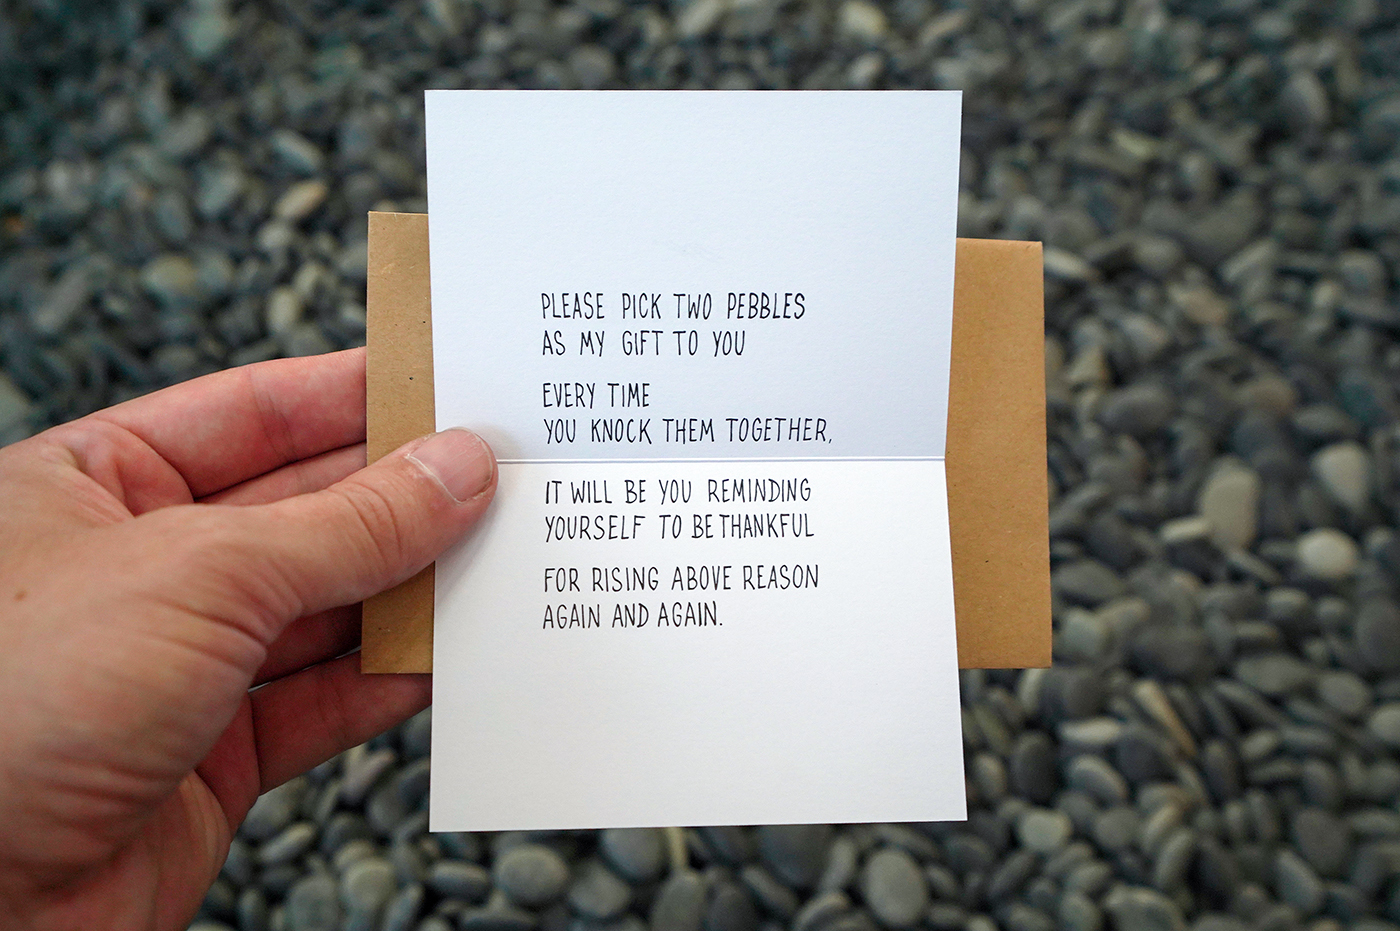 PLEASE PICK TWO PEBBLES
AS MY GIFT TO YOU
EVERY TIME
YOU KNOCK THEM TOGETHER,
IT WILL BE YOU REMINDING
YOURSELF TO BE THANKFUL
FOR RISING ABOVE REASON
AGAIN AND AGAIN.